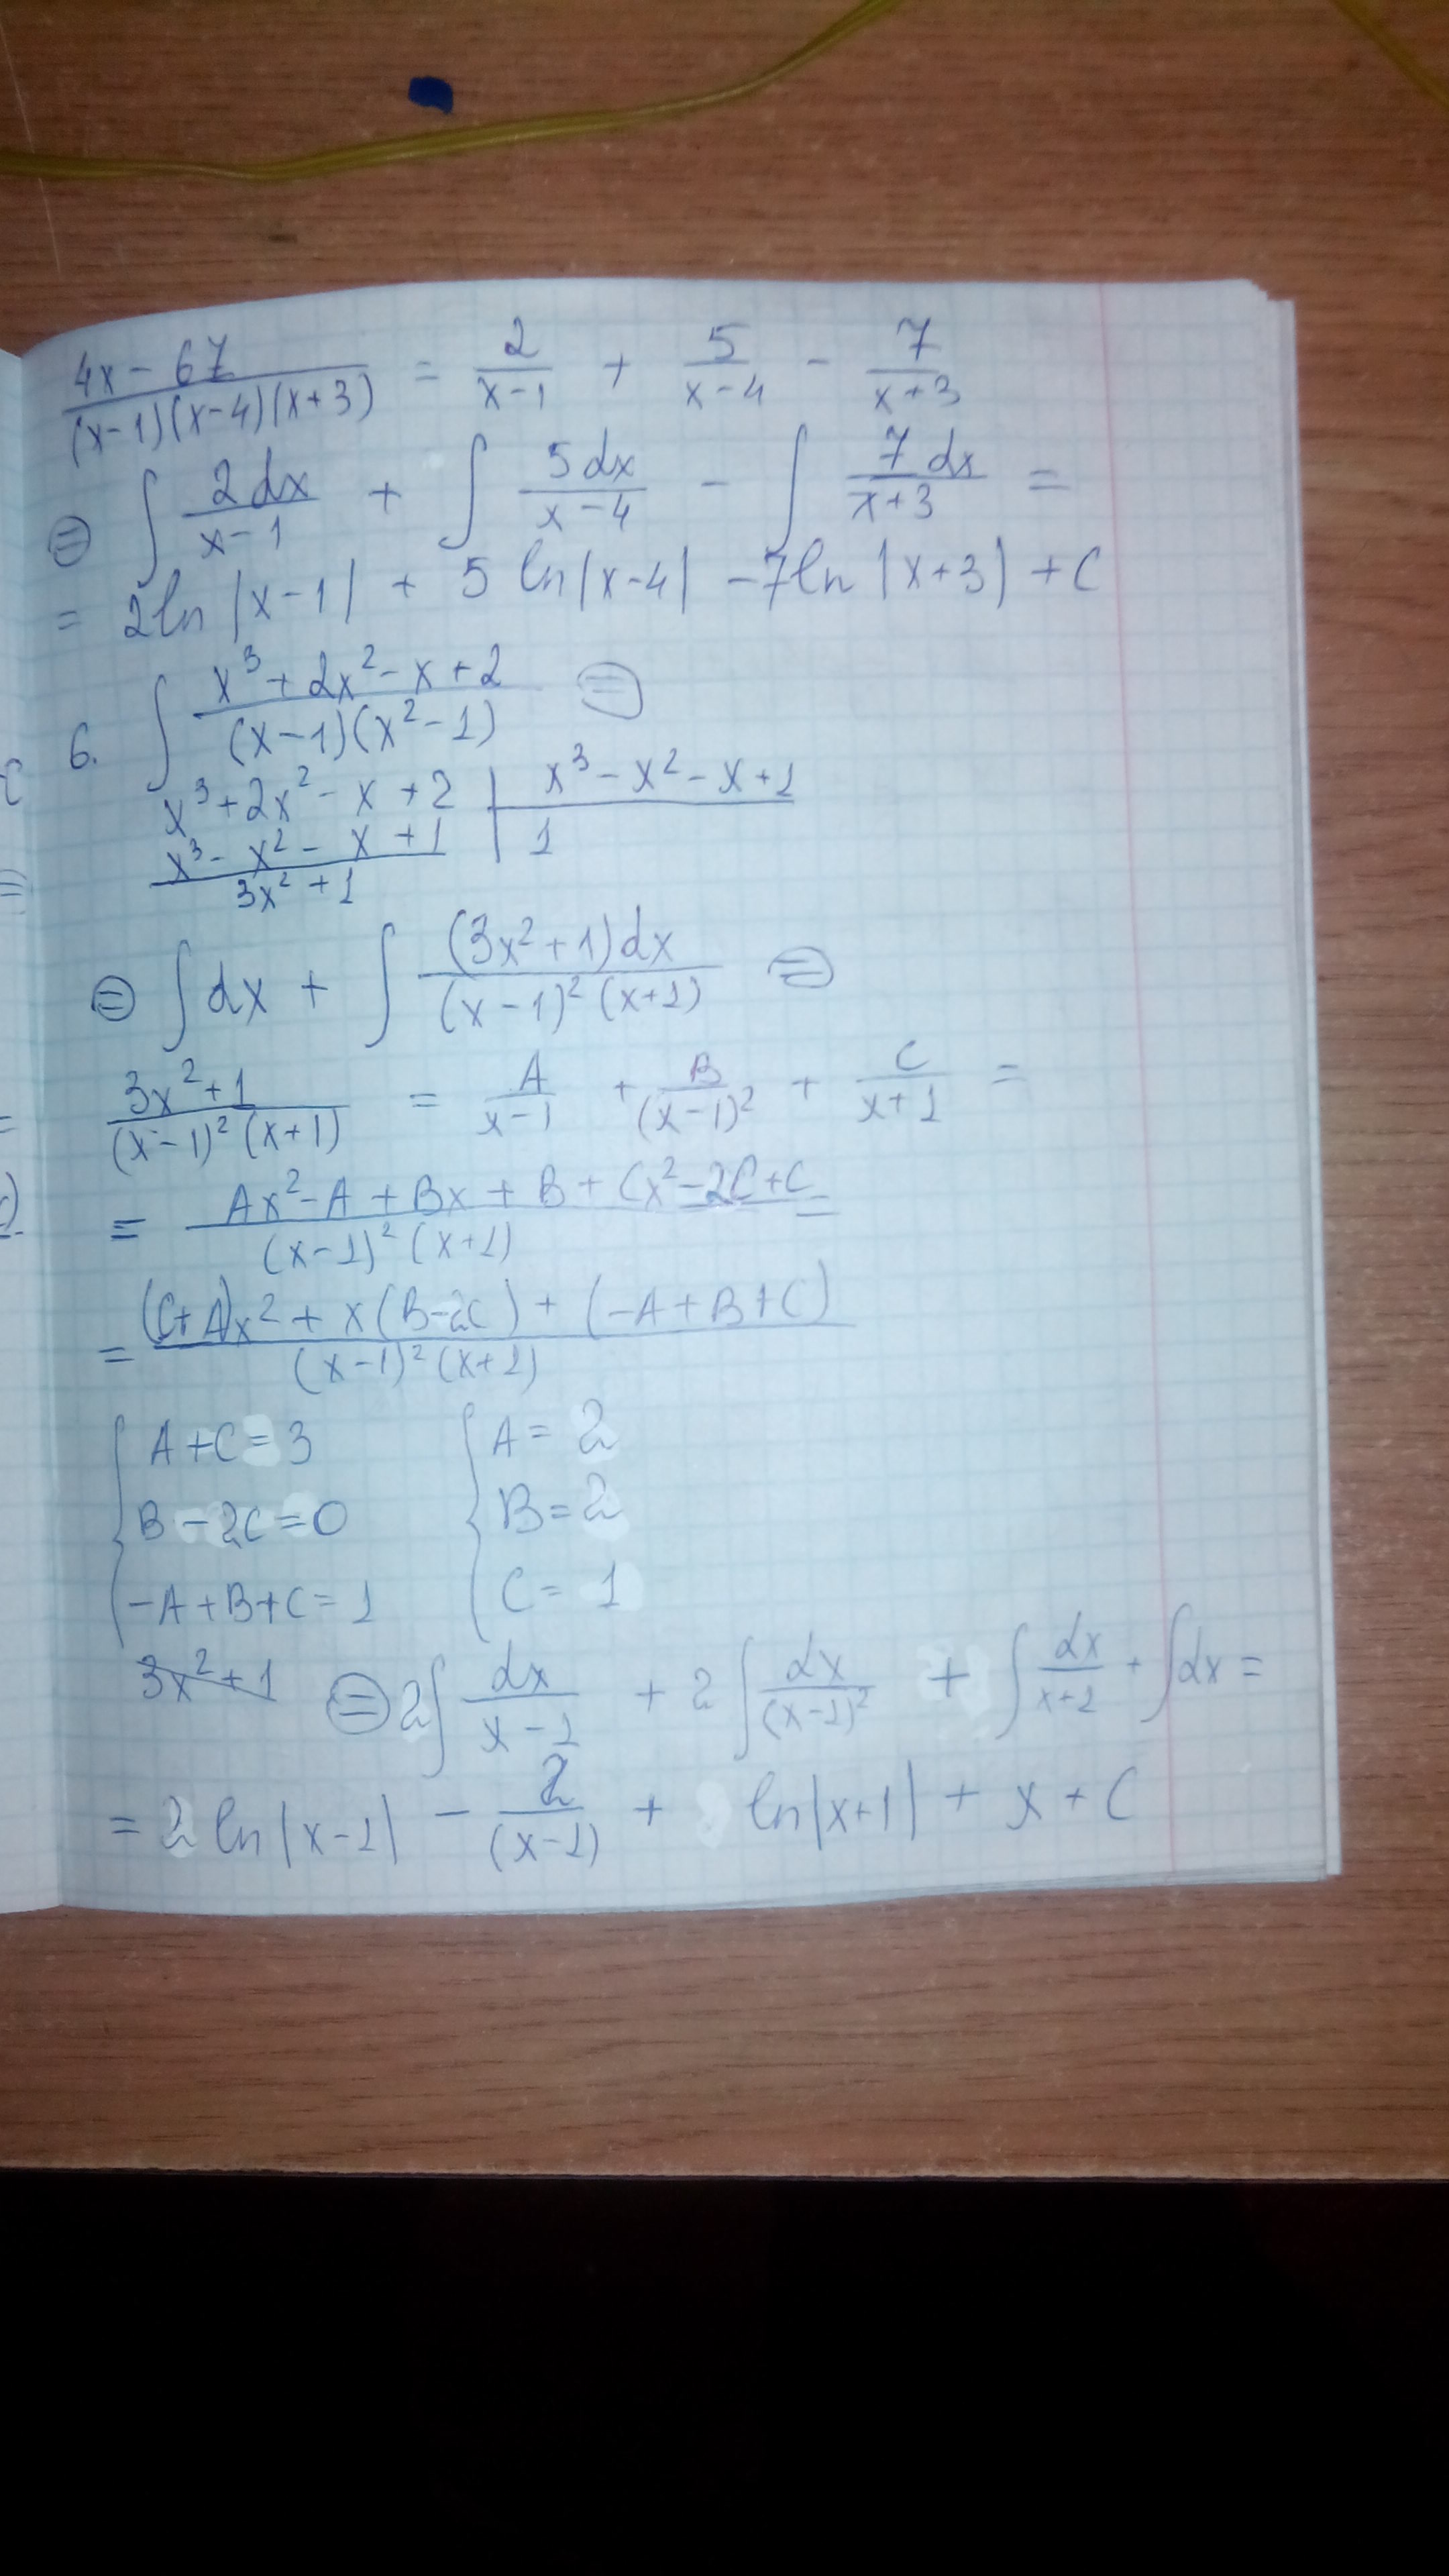 (4x - 67)/((x-1)(x-4)(x+3)) = 2/(x-1) + 5/(x-4) - 7/(x+3)
⊜ ∫ 2dx/(x-1) + ∫ 5dx/(x-4) - ∫ 7dx/(x+3) =
= 2ln|x-1| + 5 ln|x-4| - 7ln|x+3| + C
6. ∫ (x³ + 2x² - x + 2)/((x-1)(x²-1)) ⊜
x³ + 2x² - x + 2 | x³ - x² - x + 1
x³ - x² - x + 1 | 1
3x² + 1
⊜ ∫ dx + ∫ (3x²+1)dx/((x-1)² (x+1)) ⊜
(3x²+1)/((x-1)² (x+1)) = A/(x-1) + B/(x-1)² + C/(x+1) =
= (Ax² - A + Bx + B + Cx² - 2C + C)/((x-1)² (x+1)) =
= ((C+A)x² + x(B-2C) + (-A+B+C))/((x-1)² (x+1))
{ A + C = 3 { A = 2
B - 2C = 0 B = 2
-A + B + C = 1 C = 1
3x² + 1 ⊜ 2∫ dx/(x-1) + 2∫ dx/(x-1)² + ∫ dx/(x+1) + ∫dx =
= 2 ln|x-1| - 2/(x-1) + ln|x+1| + x + C